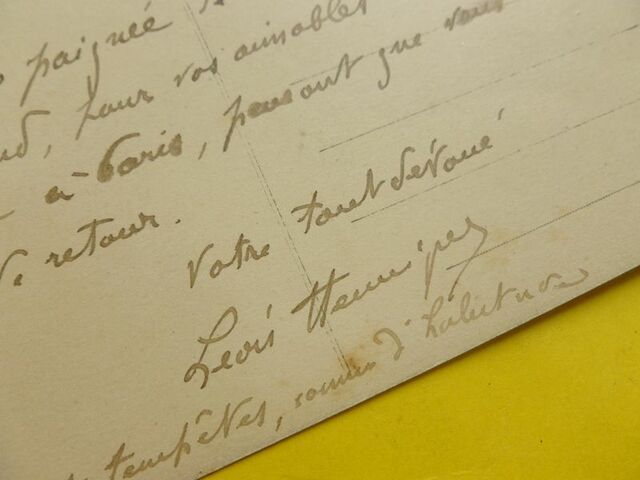 paignée
, pour vos aimables
à Paris, pensant que vous
de retour.
Votre tout dévoué
Léon Hennique
tempêtes, comme d'habitude